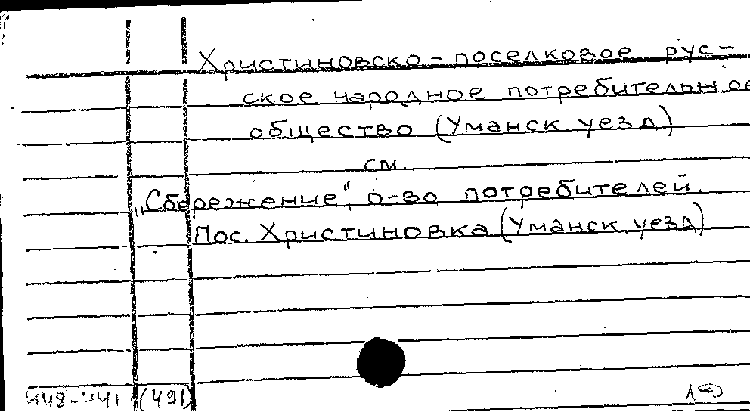 Христиновско-поселковое рус-
ское народное потребительное
общество (Уманск. уезд)
см.
„Сбережение", о-во потребителей.
Пос. Христиновка (Уманск. уезд)
(491)